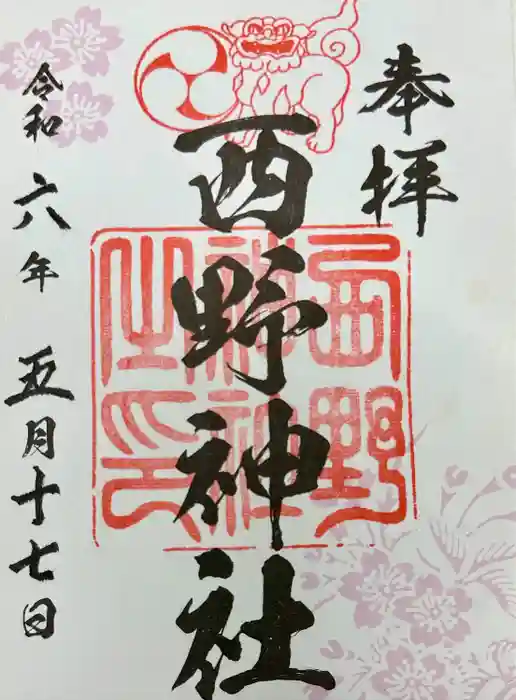 奉拝
西野神社
西野
神社
之印
令和六年五月十七日